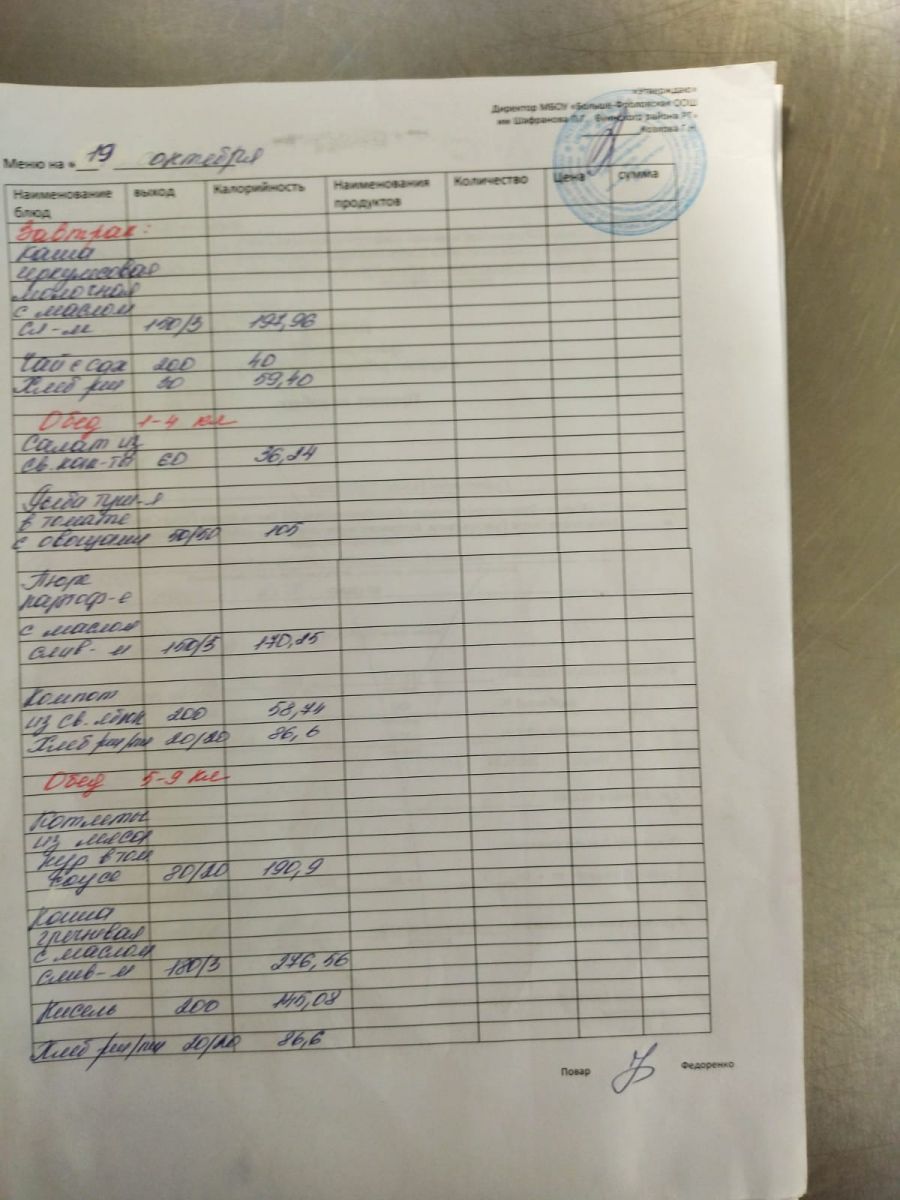 «Утверждаю»
Директор МБОУ «Больше-Фроловская ООШ
им Шафранова П.Г. Буинского района РТ»
Козлова Г.Н
Меню на « 19 октября
Наименование блюд выход Калорийность Наименования продуктов Количество Цена сумма
Завтрак:
Каша
молочная
с маслом
сл-м 150/3 197,96
Чай с сах 200 40
Хлеб рж 30 59,40
Обед 1-4 кл
Салат из
св. кап-ты 60 36,24
Рыба туш-я
в томате
с овощами 50/50 105
Пюре
картоф-е
с маслом
слив-м 150/3 170,25
Компот
из св. ябл 200 58,74
Хлеб рж/пш 20/20 86,6
Обед 5-9 кл
Котлеты
из мяса
кур в том
соусе 80/20 190,9
Каша
гречневая
с маслом
слив-м 180/3 276,56
Кисель 200 145,08
Хлеб рж/пш 20/20 86,6
Повар Федоренко